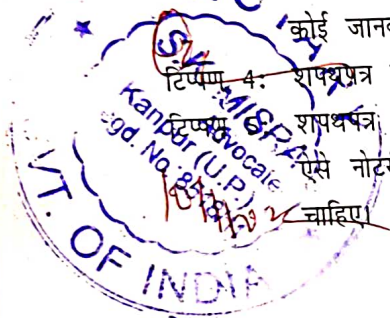 कोई जानक
टिप्पण 4: शपथपत्र
टिप्पण 5 शपथपत्र
ऐसे नोट
चाहिए।
S.K. MISRA
Advocate
Kanpur (U.P.)
gd. No.
VT. OF INDIA